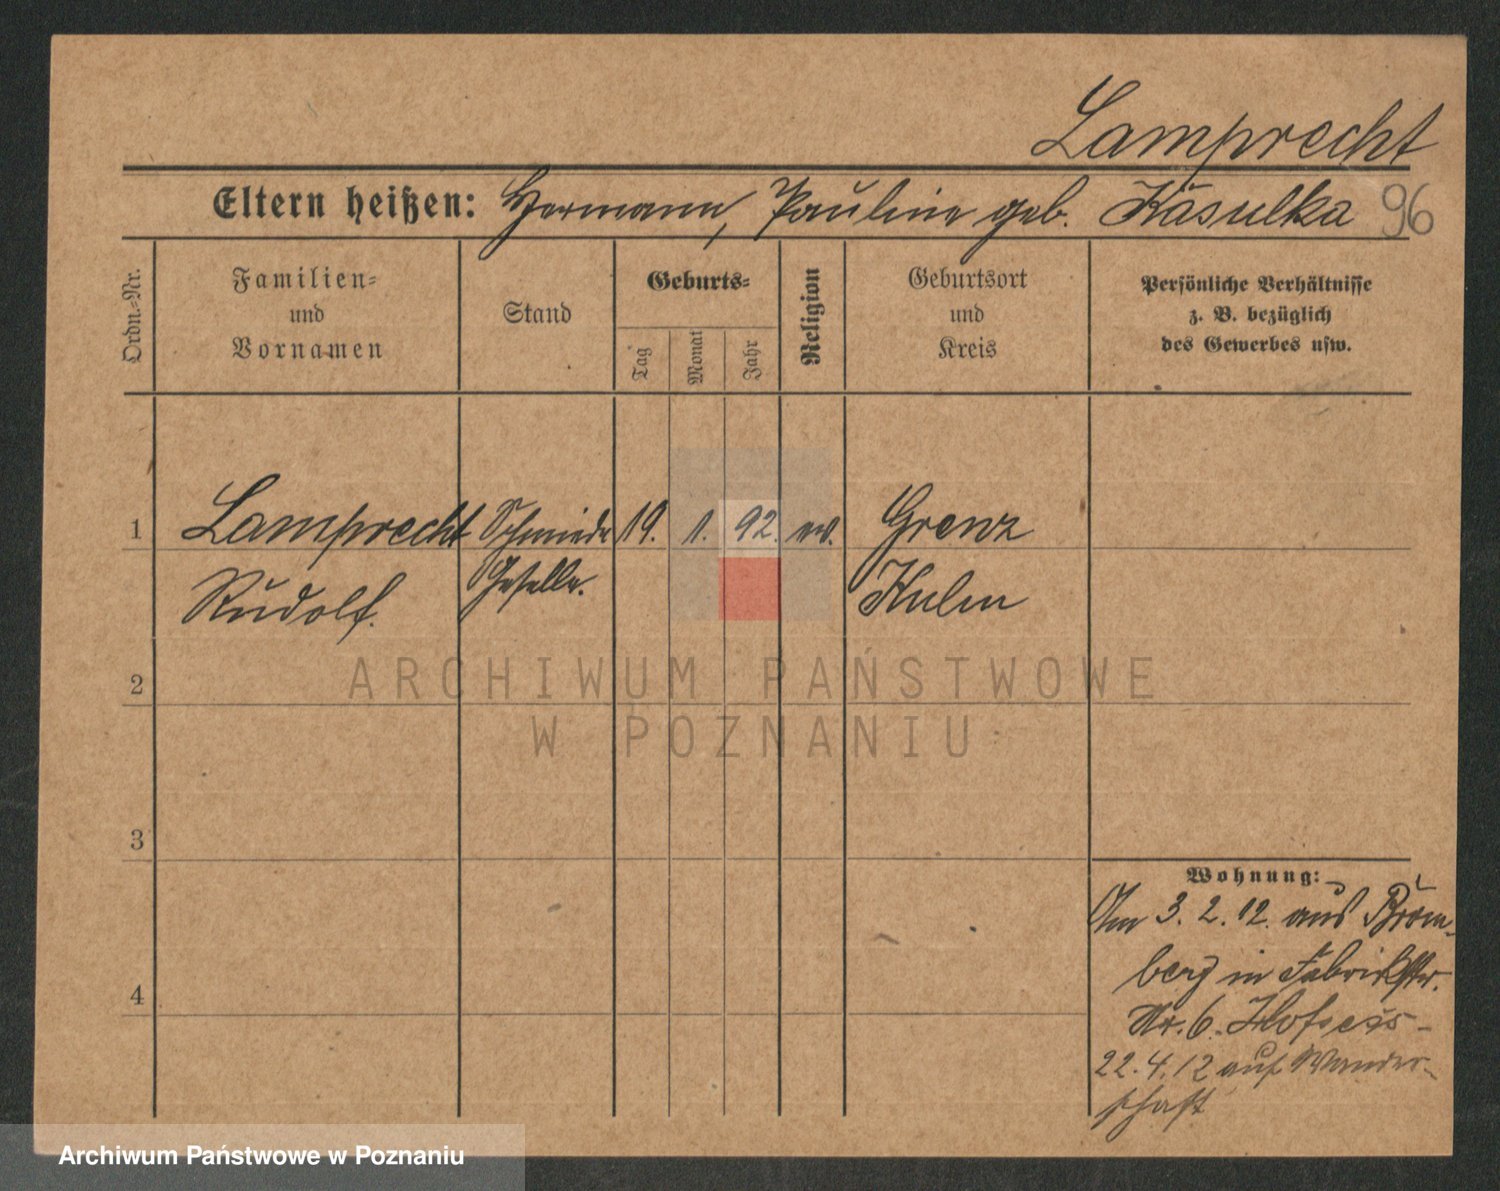 Lamprecht
Eltern heißen: Hermann, Pauline geb. Käsulka 96
Ordn.-Nr.
Familien-
und
Vornamen
Stand
Geburts-
Tag
Monat
Jahr
Religion
Geburtsort
und
Kreis
Persönliche Verhältnisse
z. B. bezüglich
des Gewerbes usw.
1 Lamprecht Schmiede 19. 1. 92. ev. Grenz
Rudolf. Geselle. Kulm
2
3
4
Wohnung:
Am 3. 2. 12. aus Brom-
berg in Fabrikstr.
Nr. 6.
22.4.12 auf Wander-
schaft
ARCHIWUM PAŃSTWOWE
W POZNANIU
Archiwum Państwowe w Poznaniu